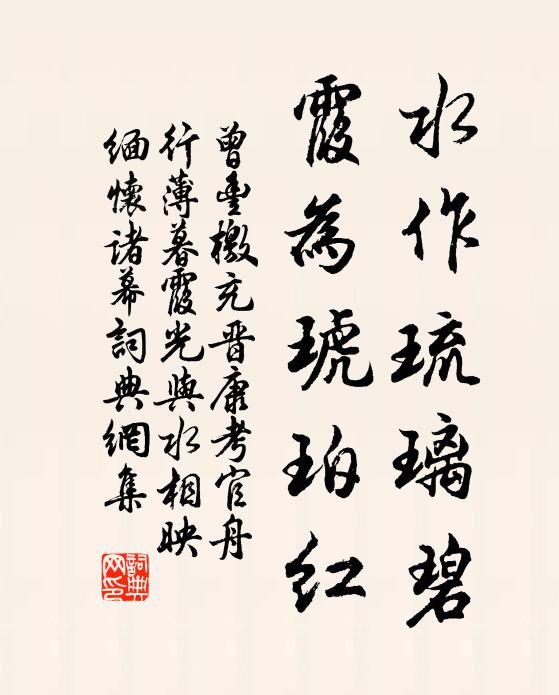 水作琉璃碧
霞為琥珀紅
曾豊檄充晋康考官舟
行薄暮霞光與水相映
緬懷諸幕詞典網集
詞典
网印